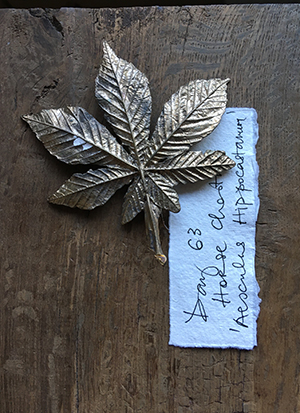 Day 63
Horse Chest
'Aesculus Hippocastanum'